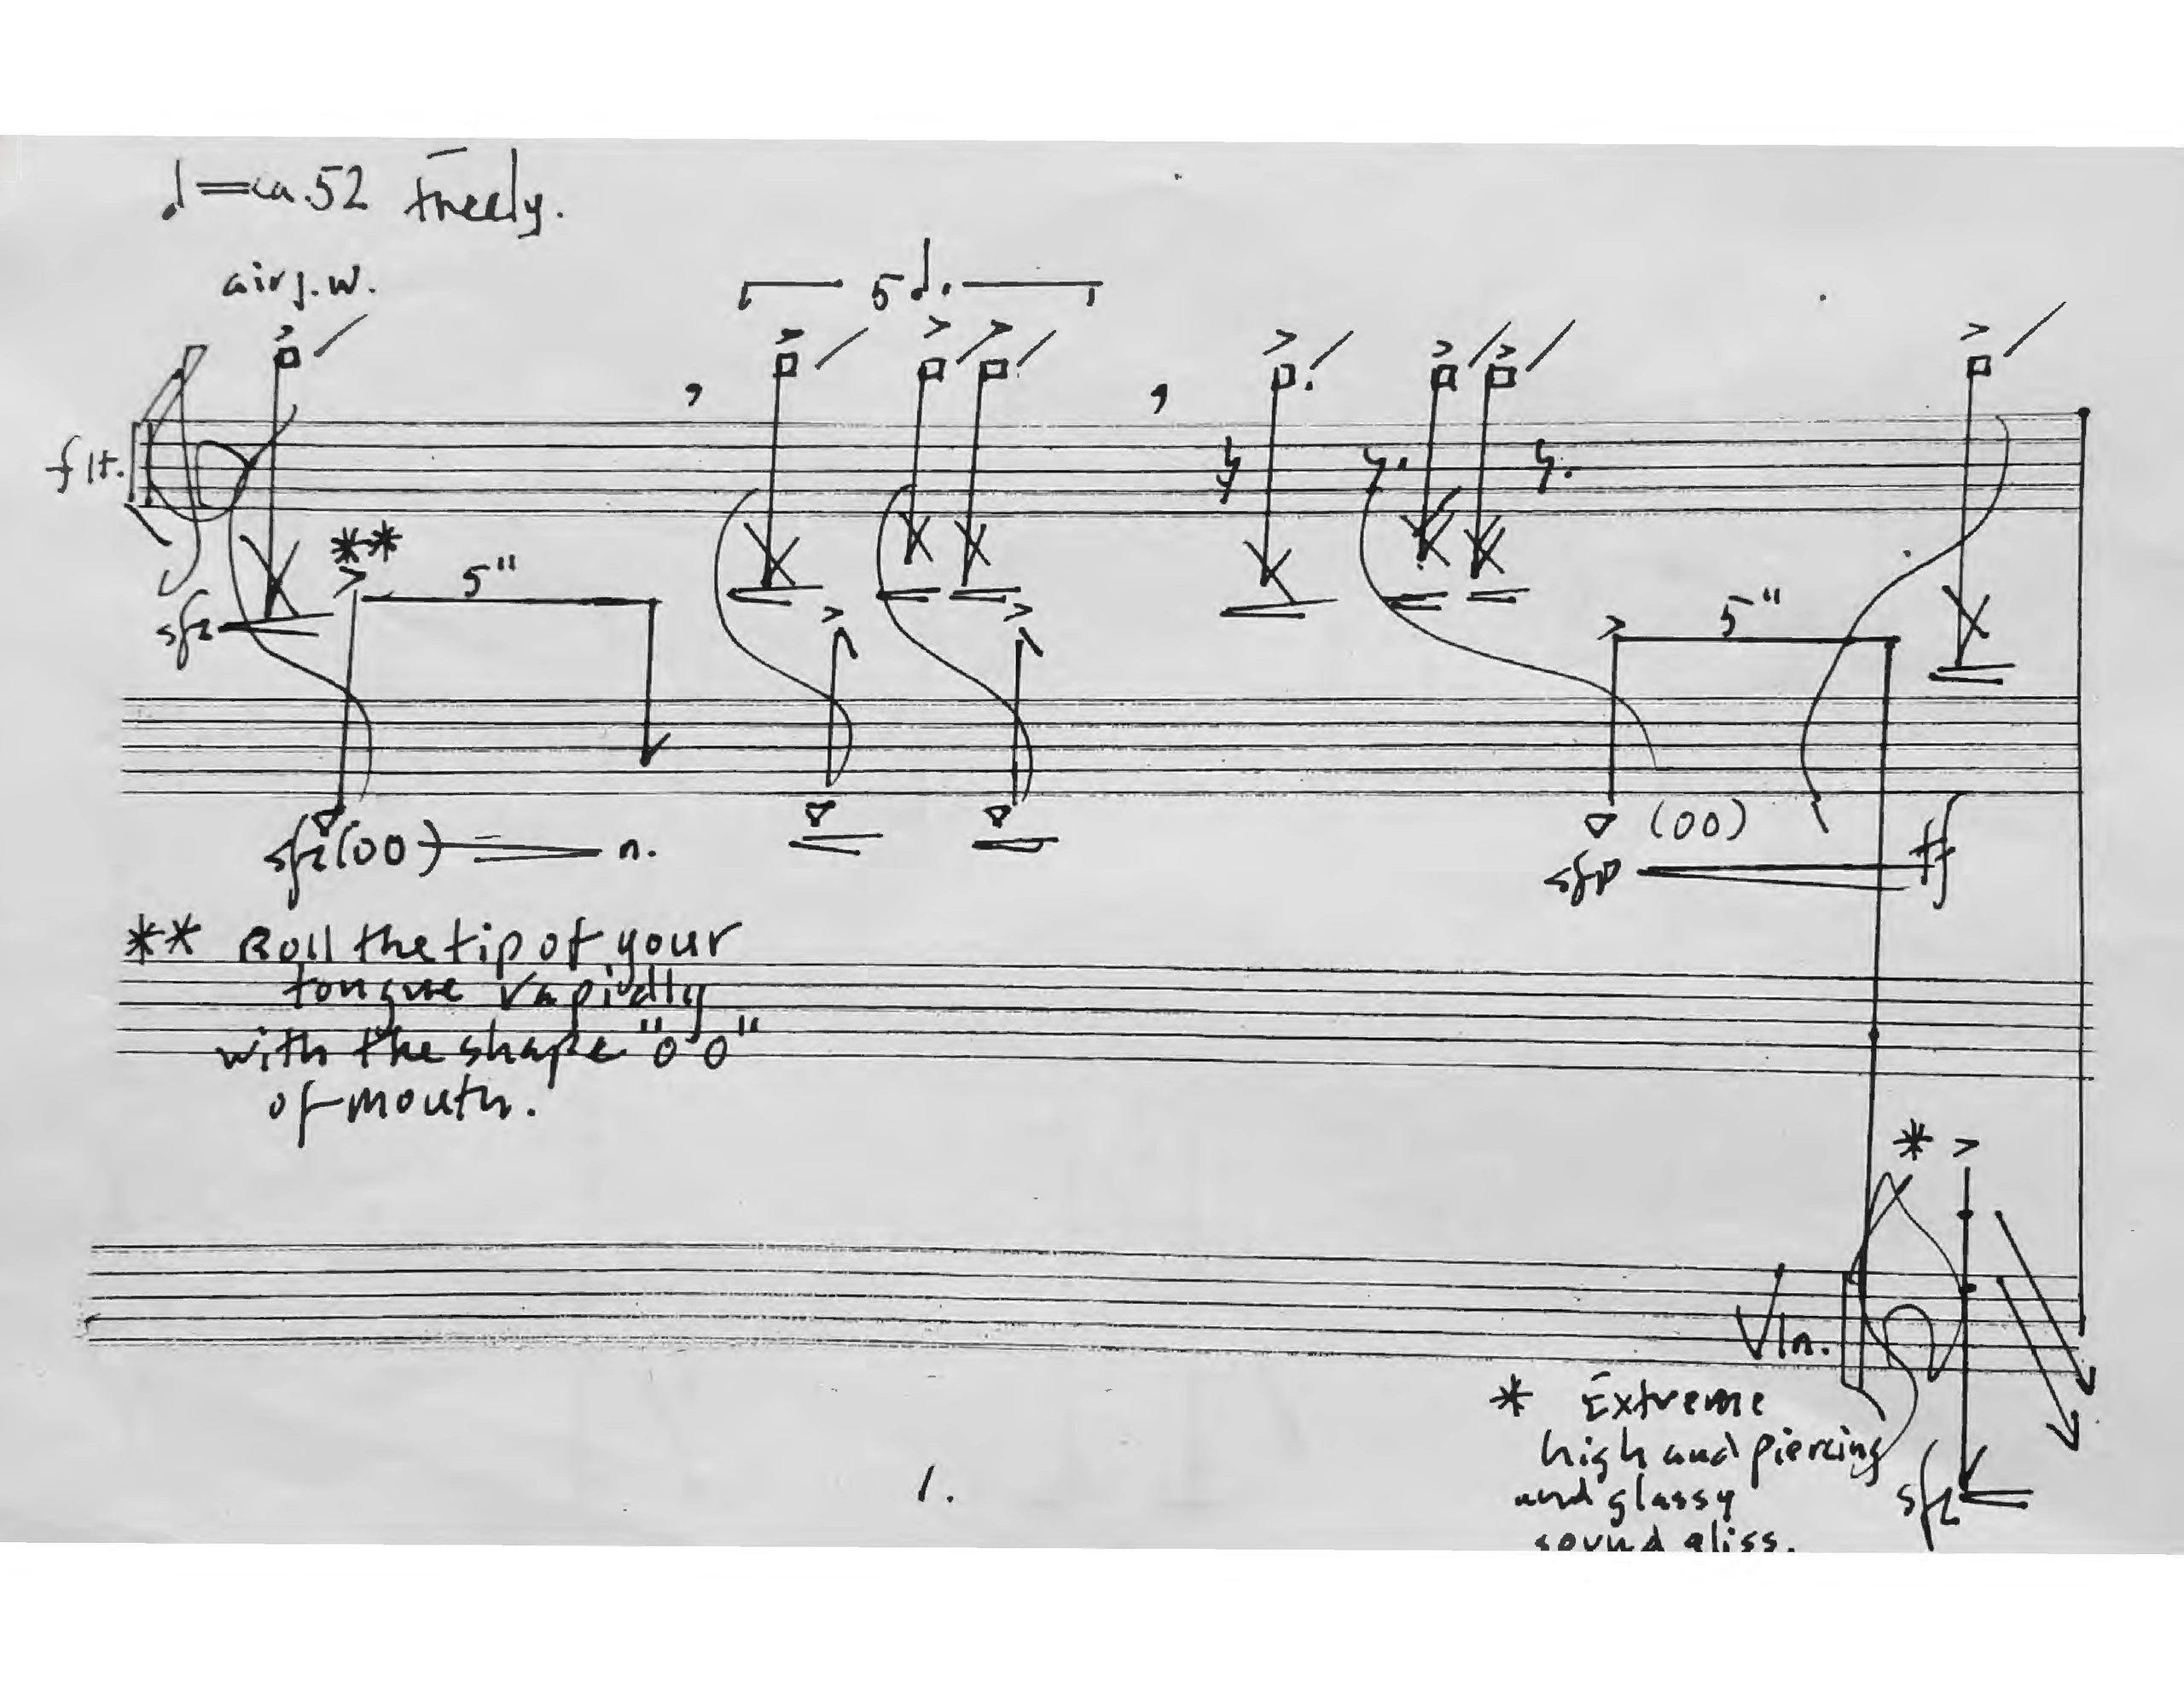 ♩=ca.52 Freely.
air j.w.
5 ♩.
flt.
**
5"
sfz
5"
sfz(OO) n.
(OO)
sfp ff
** Roll the tip of your
tongue rapidly
with the shape "OO"
of mouth.
*
Vln.
* Extreme
high and piercing
and glassy
sound gliss.
sfz
1.